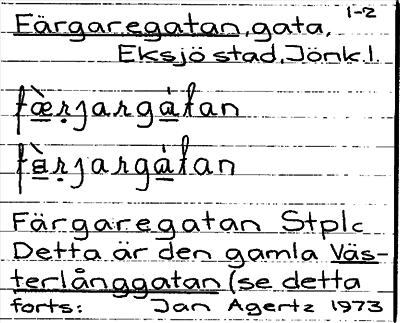 1-2
Färgaregatan, gata,
Eksjö stad, Jönk.l.
fæ̀rjargàtan
fàrjargàtan
Färgaregatan Stplc
Detta är den gamla Väs-
terlånggatan (se detta
forts: Jan Agertz 1973